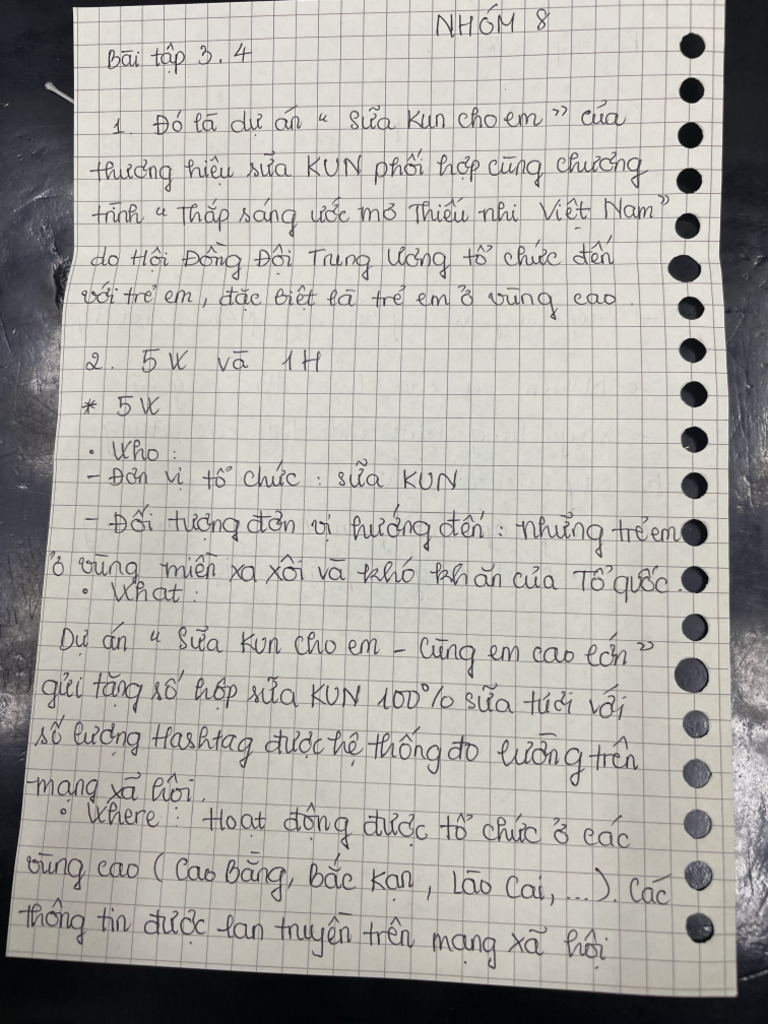 NHÓM 8
Bài tập 3.4
1. Đó là dự án " Sữa Kun cho em " của
thương hiệu sữa KUN phối hợp cùng chương
trình " Thắp sáng ước mơ Thiếu nhi Việt Nam "
do Hội Đồng Đội Trung Ương tổ chức đến
với trẻ em, đặc biệt là trẻ em ở vùng cao.
2. 5W và 1H
* 5W
• Who :
- Đơn vị tổ chức : sữa KUN
- Đối tượng đơn vị hướng đến : những trẻ em
ở vùng miền xa xôi và khó khăn của Tổ quốc.
• What :
Dự án " Sữa Kun cho em - Cùng em cao lớn "
gửi tặng số hộp sữa KUN 100% sữa tươi với
số lượng Hashtag được hệ thống đo lường trên
mạng xã hội.
• Where : Hoạt động được tổ chức ở các
vùng cao ( Cao Bằng, Bắc Kạn, Lào Cai, ...). Các
thông tin được lan truyền trên mạng xã hội